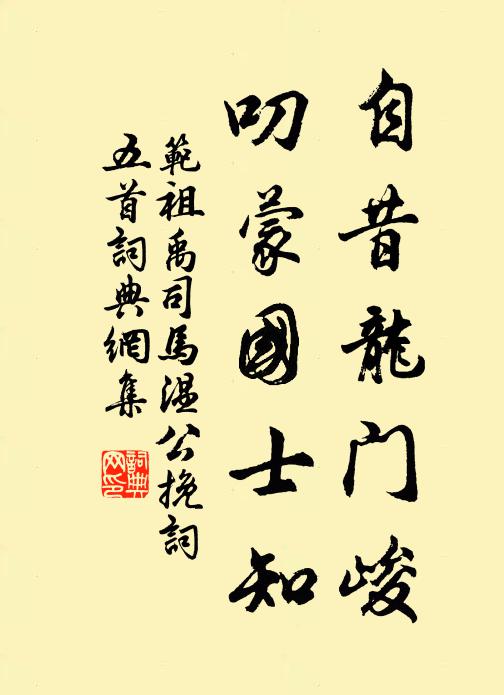 自昔龍门峻
叨蒙國士知
範祖禹司馬温公挽詞
五首詞典網集
詞典
网印